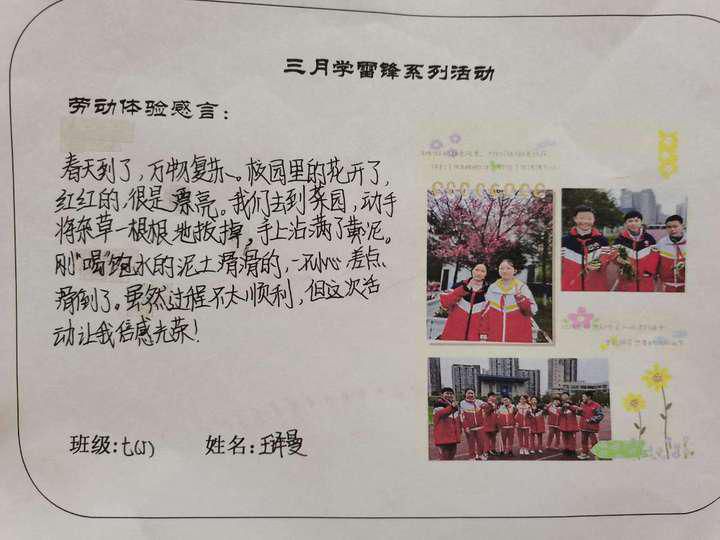 三月学雷锋系列活动
劳动体验感言：
春天到了，万物复苏、。校园里的花开了，
红红的，很是漂亮。我们去到菜园，动手
将杂草一根根地拔掉，手上沾满了黄泥。
刚“喝”饱水的泥土滑滑的，一不小心差点
滑倒了。虽然过程不太顺利，但这次活
动让我倍感光荣！
班级：七(5) 姓名：王泽曼